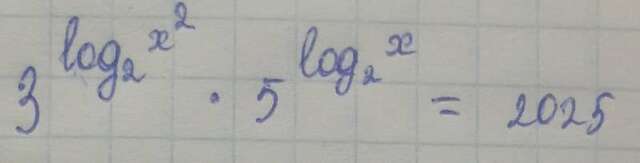 3^{log₂ x²} · 5^{log₂ x} = 2025